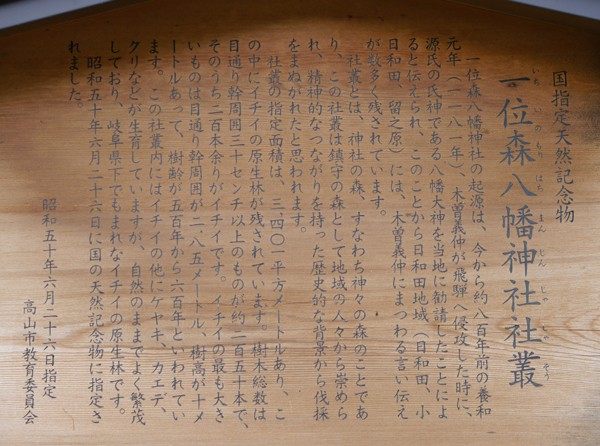 国指定天然記念物
一位森八幡神社社叢
いち いの もり はち まん じん じゃ しゃ そう
一位森八幡神社の起源は、今から約八百年前の養和
元年(一一八一年)、木曽義仲が飛騨へ侵攻した時に、
源氏の氏神である八幡大神を当地に勧請したことによ
ると伝えられ、このことから日和田地域(日和田、小
日和田、留之原)には、木曽義仲にまつわる言い伝え
が数多く残されています。
社叢とは、神社の森、すなわち神々の森のことであ
り、この社叢は鎮守の森として地域の人々から崇めら
れ、精神的なつながりを持った歴史的な背景から伐採
をまぬがれたと思われます。
社叢の指定面積は、三、四〇一平方メートルあり、こ
の中にイチイの原生林が残されています。樹木総数は
目通り幹周囲三十センチ以上のものが約二百五十本で、
そのうち二百本余りがイチイです。イチイの最も大き
いものは目通り幹周囲が二、八五メートル、樹高が十メ
ートルあって、樹齢が五百年から六百年といわれてい
ます。この社叢内にはイチイの他にケヤキ、カエデ、
クリなどが生育していますが、自然のままでよく繁茂
しており、岐阜県下でもまれなイチイの原生林です。
昭和五十年六月二十六日に国の天然記念物に指定さ
れました。
昭和五十年六月二十六日指定
高山市教育委員会